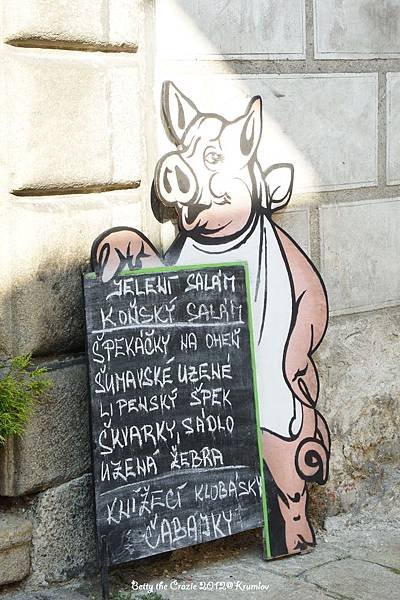 JELENÍ SALÁM
KOŇSKÝ SALÁM
ŠPEKAČKY NA OHEŇ
ŠUMAVSKÉ UZENÉ
LIPENSKÝ ŠPEK
ŠKVARKY, SÁDLO
UZENÁ ŽEBRA
KNÍŽECÍ KLOBÁSKY
ČABAJKY
Betty the Crazie 2012@Krumlov